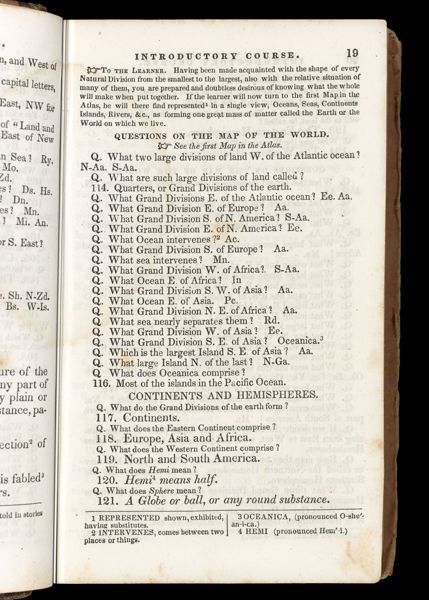 n, and West of
capital letters,
East, NW for
of "Land and
East of New
n Sea? Ry.
Mo.
Zd.
es? Ds. Hs.
? Dn.
es? Mn.
? Mi. An.
or S. East?
e. Sh. N-Zd.
Bs. W-Is.
ure of the
ny part of
y plain or
stance, pa-
ection² of
is fabled³
rs.
told in stories
INTRODUCTORY COURSE. 19
☞ To the Learner. Having been made acquainted with the shape of every
Natural Division from the smallest to the largest, also with the relative situation of
many of them, you are prepared and doubtless desirous of knowing what the whole
will make when put together. If the learner will now turn to the first Map in the
Atlas, he will there find represented¹ in a single view, Oceans, Seas, Continents
Islands, Rivers, &c., as forming one great mass of matter called the Earth or the
World on which we live.
QUESTIONS ON THE MAP OF THE WORLD.
☞ See the first Map in the Atlas.
Q. What two large divisions of land W. of the Atlantic ocean?
N-Aa. S-Aa.
Q. What are such large divisions of land called?
114. Quarters, or Grand Divisions of the earth.
Q. What Grand Divisions E. of the Atlantic ocean? Ee. Aa.
Q. What Grand Division E. of Europe? Aa.
Q. What Grand Division S. of N. America? S-Aa.
Q. What Grand Division E. of N. America? Ee.
Q. What Ocean intervenes?² Ac.
Q. What Grand Division S. of Europe? Aa.
Q. What sea intervenes? Mn.
Q. What Grand Division W. of Africa? S-Aa.
Q. What Ocean E. of Africa? In
Q. What Grand Division S. W. of Asia? Aa.
Q. What Ocean E. of Asia. Pc.
Q. What Grand Division N. E. of Africa? Aa.
Q. What sea nearly separates them? Rd.
Q. What Grand Division W. of Asia? Ee.
Q. What Grand Division S. E. of Asia? Oceanica.³
Q. Which is the largest Island S. E. of Asia? Aa.
Q. What large Island N. of the last? N-Ga.
Q. What does Oceanica comprise?
116. Most of the islands in the Pacific Ocean.
CONTINENTS AND HEMISPHERES.
Q. What do the Grand Divisions of the earth form?
117. Continents.
Q. What does the Eastern Continent comprise?
118. Europe, Asia and Africa.
Q. What does the Western Continent comprise?
119. North and South America.
Q. What does Hemi mean?
120. Hemi⁴ means half.
Q. What does Sphere mean?
121. A Globe or ball, or any round substance.
1 REPRESENTED shown, exhibited,
having substitutes.
2 INTERVENES, comes between two
places or things.
3 OCEANICA, (pronounced O-she'-
an-i-ca.)
4 HEMI (pronounced Hem'-i.)